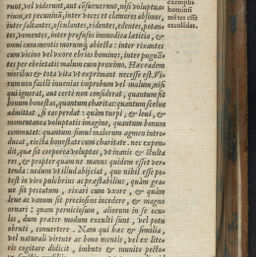 exemplis
hominũ
mẽtes esse
excolẽdas.
rent, vel viderunt, aut cõsueuerunt, nisi voluptua-
rium, et pecuninũ, inter voces et clamores absonos,
inter saltantes, osculantes, ridentes, edentes, potan-
tes, vomentes, inter profusis immodica lætitia, &
omni cum mentis morumq́; abiecta: inter rixantes
cum vicino vel vxore ebrios homines, inter pugnãt-
tes per ebrietatis malum cum proximo. Hæc eadem
moribus & tota vita vt exprimant necesse est. Vi-
rum non facile inuenias improbum vel malum, nisi
qui ignorat, aut certè non considerat, quantum sit
bonum honestas, quantum charitas: quantum scelus
admittat, si eas perdat: quàm turpi, & leui, &
momentanea voluptatis imagine, quantum bonum
commutet: quantum simul malorum agmen intro-
ducat, eiecta honestate cum charitate. nec expen-
dit, quæ sit corporea voluptas, vt inanis & stulta
res, & propter quam ne manus quidem esset ver-
tenda: nedum vt illud abijciat, quo nihil esse po-
test in viro pulchrius ac præstabilius, quàm gra-
ue sit peccatum, rixari cum vxore, & quàm
leue ac vanum sit preciosius incedere, & magno
ornari: quam perniciosum, aliorum in se ocu-
los, dum præter modum exculti sunt, vel potu
obruti, conuertere. Nam qui hæc & similia,
vel naturali virtute ac bono mentis, vel ex lite-
ris cogitare didicit, imbuto & munito pectore